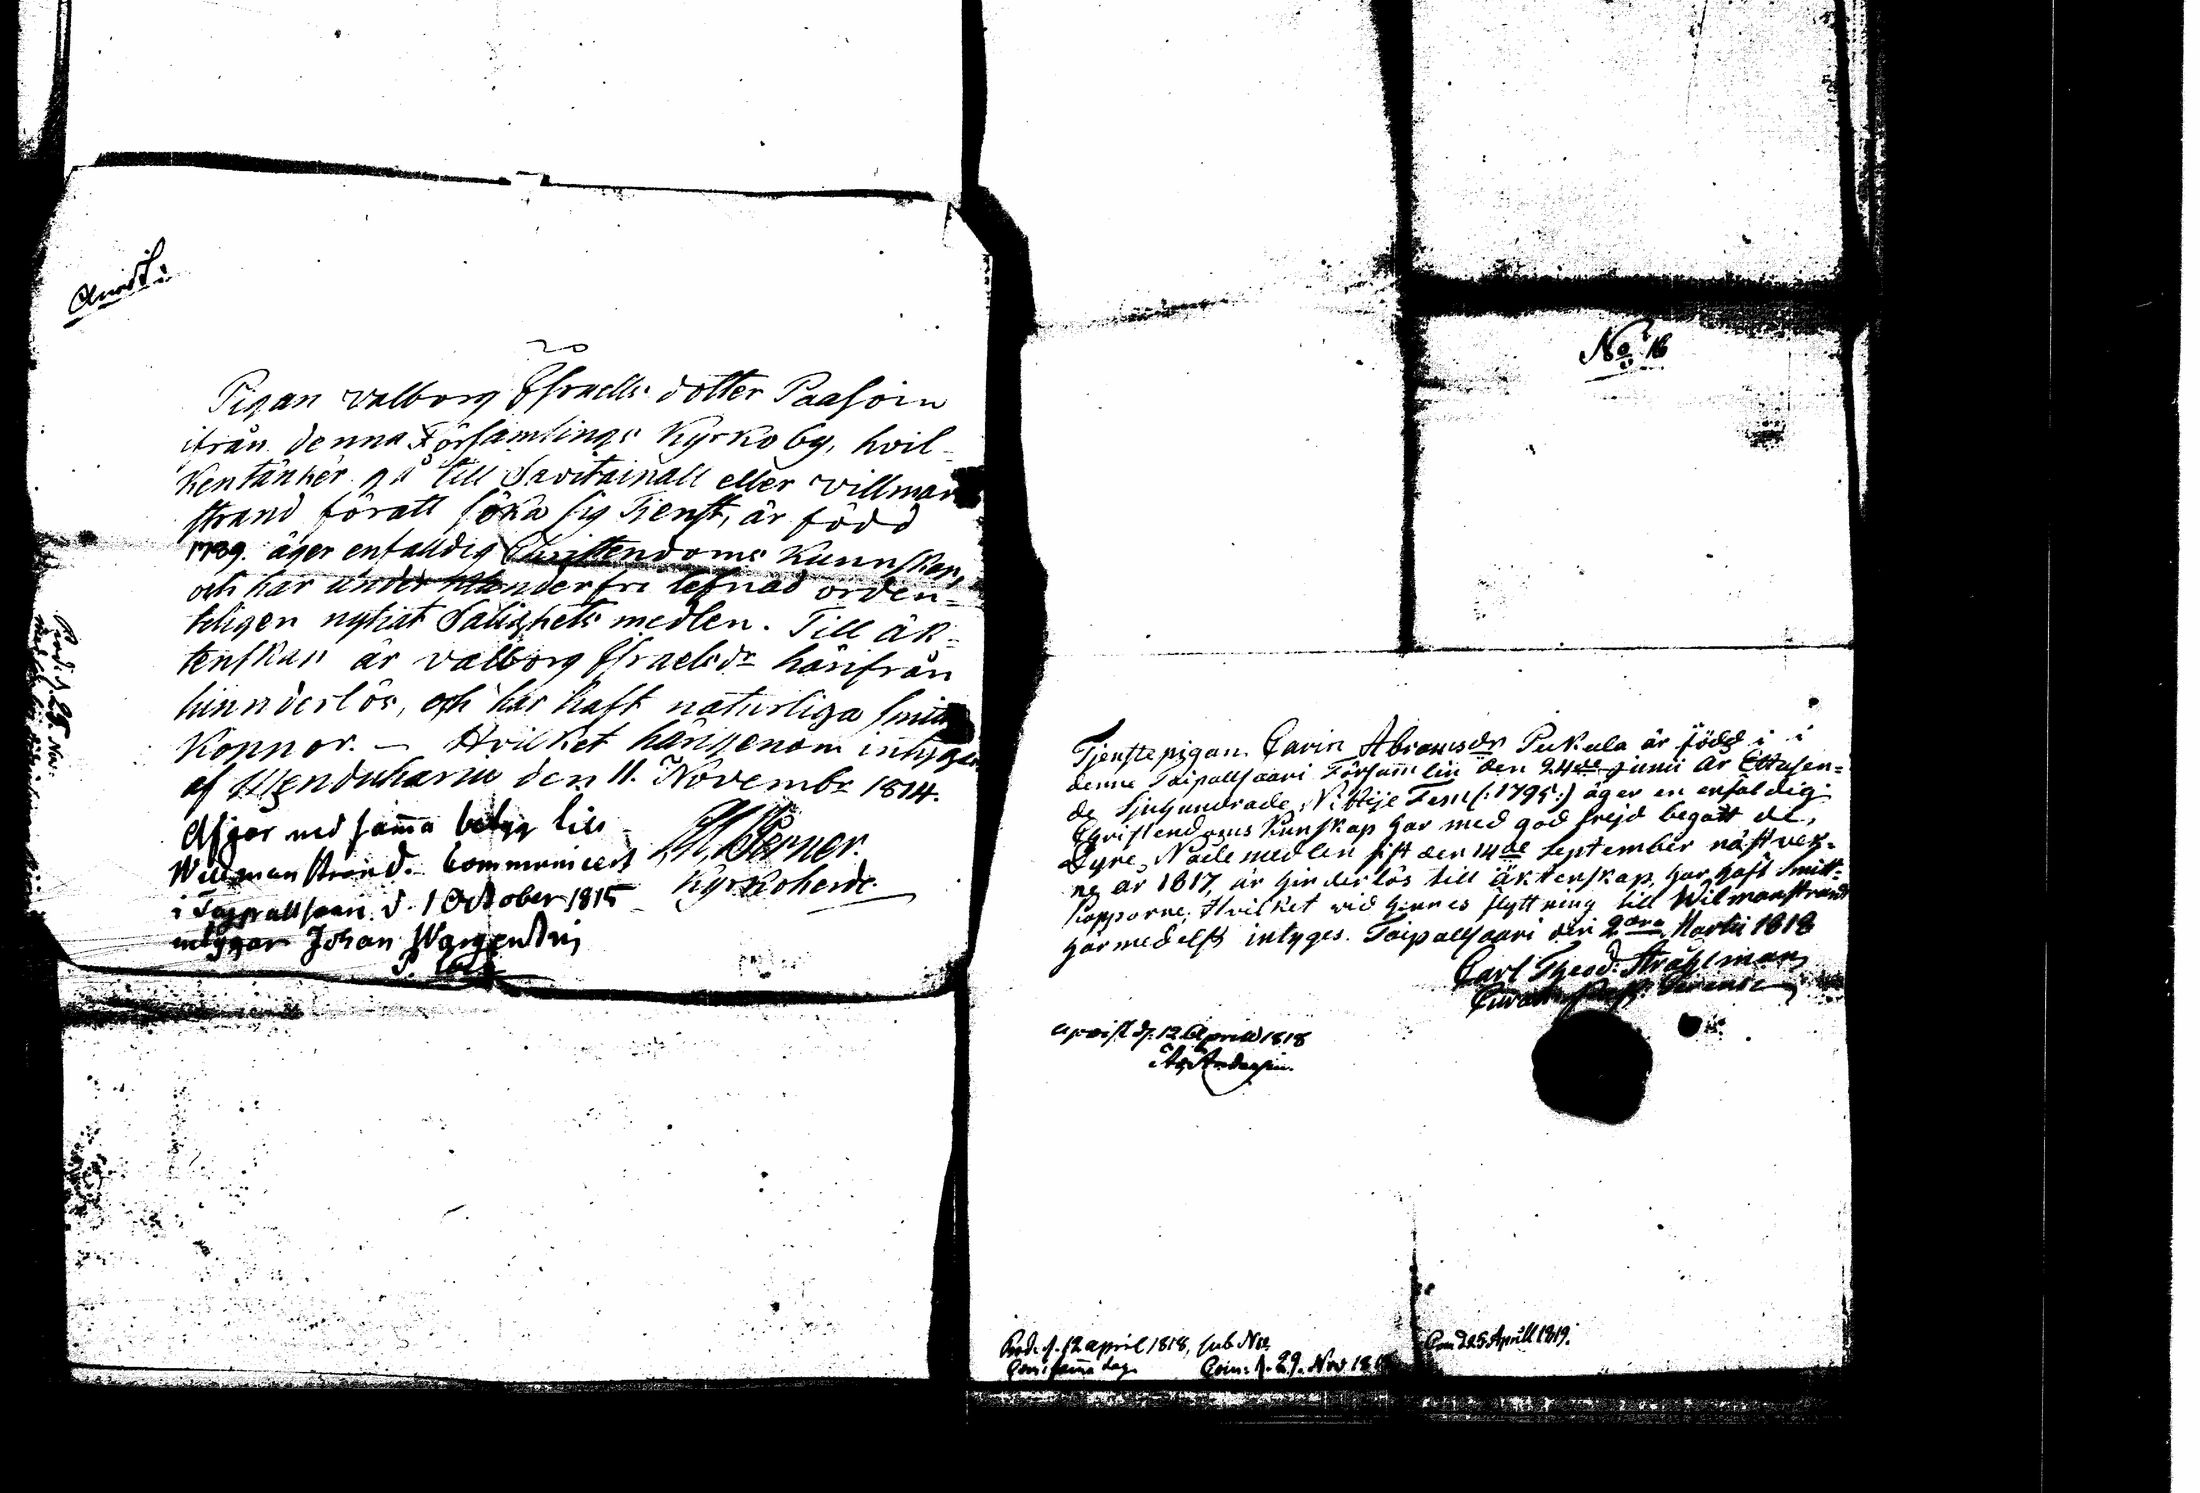 20
Pigan Valborg Esraels dotter Paasoin
ifrån denna Församlings Kyrkoby, hvil-
ken tänker gå till Savitaipall eller villman
strand föratt söka sig Tienst, är född
1789. äger enfalldig Christendoms Kunnskap,
och har under klanderfri lefnad orden-
teligen nytiat Salighets medlen. Till äk-
tenskap är Valborg Esraelsdr härifrån
hinnderlös, och har haft naturliga smitt
Koppor. – Hvilket härigenom intygar
af den 11. Novembr 1814.
Perner.
Kyrkoherde.
Afgår med samma betyg till
Willmanstrand. Communicerat
i Taipallsaari d. 1 October 1815
intygar Johan Wargentin
Prod. d. 25 Nov.
No 16
Tjenstepigan Carin Abramsdr Pukala är född i
denna Taipallsaari Församlin den 24de Junii År Ettusen-
de Sjuhundrade Nittije Fem (:1795:) äger en enfaldig
Christendoms Kunskap har med god frejd begått de
Dyre Nådemedlen sist den 14de September näst vek-
ne år 1817, är hinderlös till äktenskap, har haft Smitt-
kopporne, Hvilket vid hennes flyttning till Wilmanstrand
harmedelst intyges. Taipallsaari den 2dra Martii 1818
Carl Theod. Stråhlman
upvist d. 12 April 1818
Prod. d. 12 april 1818, sub No
Com: samma dag. Com: d. 29. Nov 181
Com d 25 Aprill 1819.